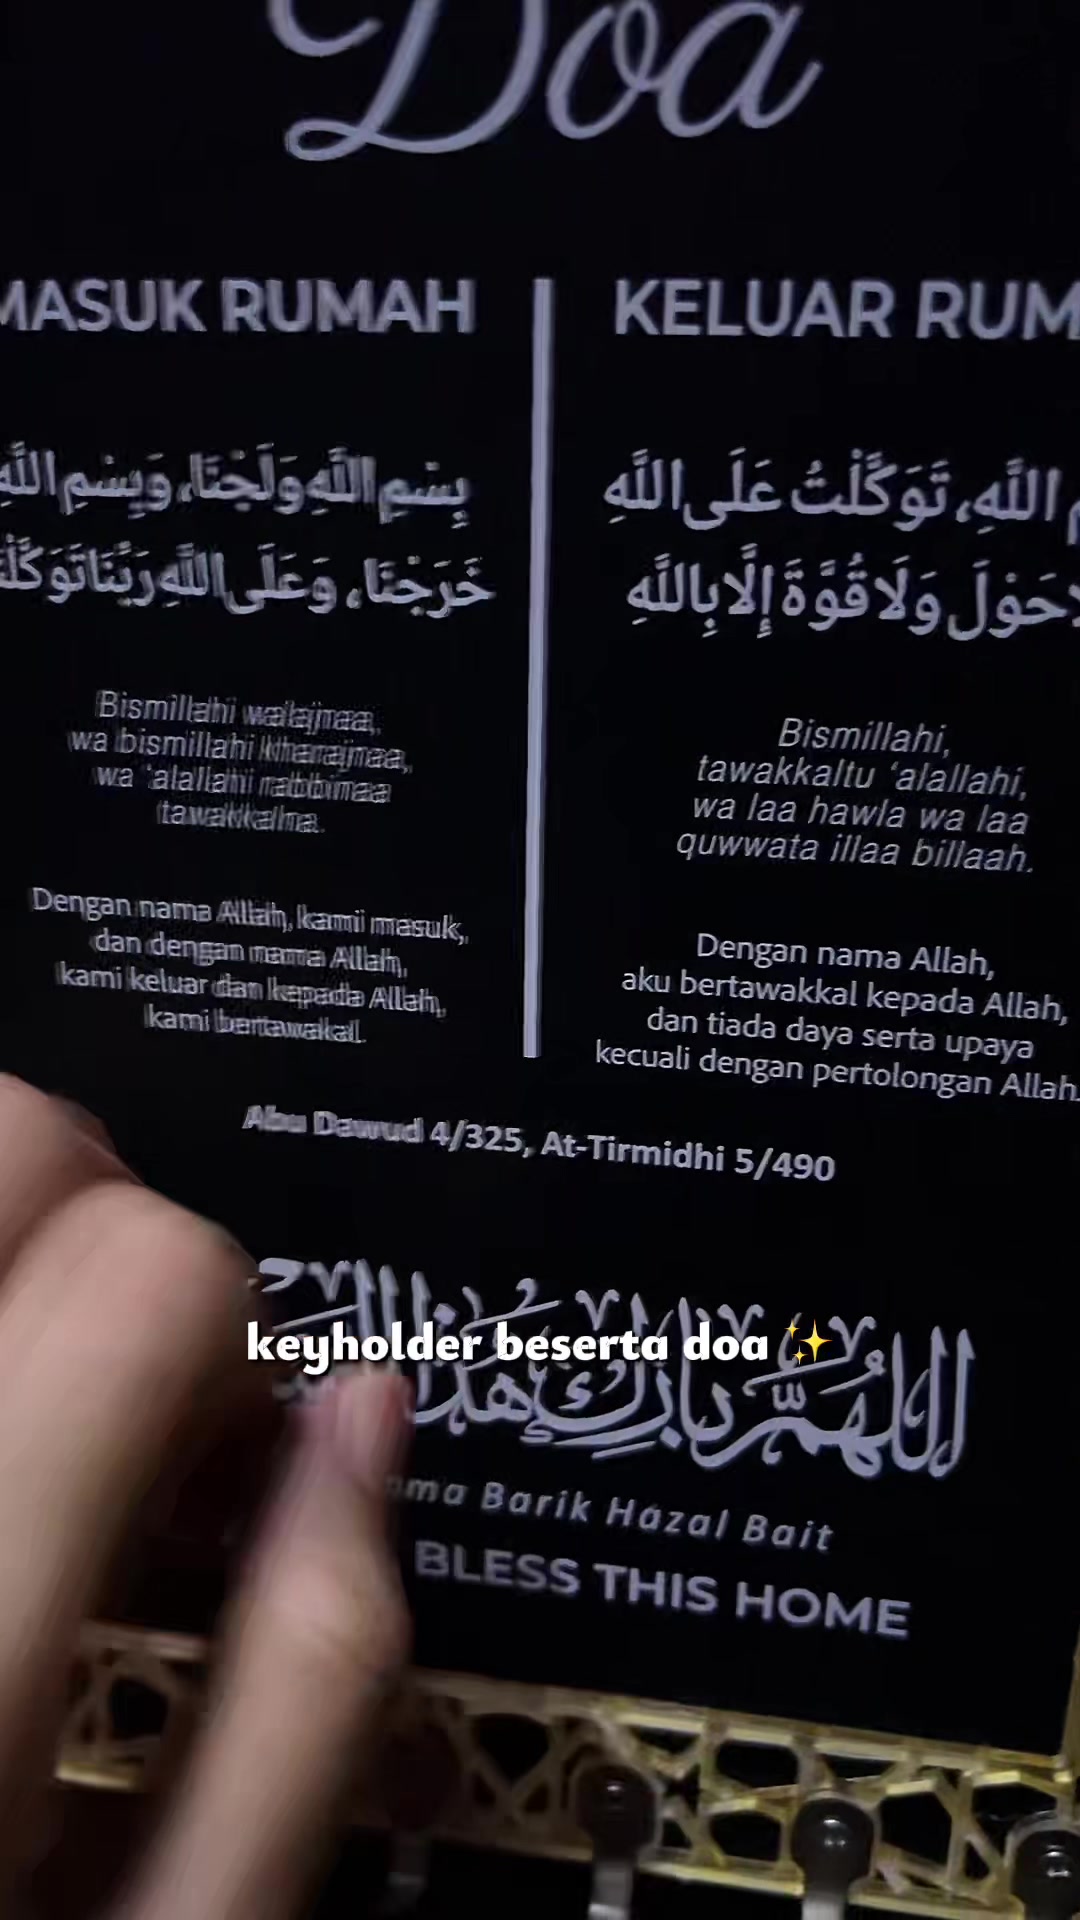 Doa
MASUK RUMAH
بِسْمِ اللَّهِ وَلَجْنَا، وَبِسْمِ اللَّهِ
خَرَجْنَا، وَعَلَى اللَّهِ رَبِّنَا تَوَكَّلْنَا
Bismillahi walajnaa,
wa bismillahi kharajnaa,
wa ‘alallahi rabbinaa
tawakkalna.
Dengan nama Allah, kami masuk,
dan dengan nama Allah,
kami keluar dan kepada Allah,
kami bertawakal.
KELUAR RUM
اللَّهِ، تَوَكَّلْتُ عَلَى اللَّهِ
حَوْلَ وَلَا قُوَّةَ إِلَّا بِاللَّهِ
Bismillahi,
tawakkaltu ‘alallahi,
wa laa hawla wa laa
quwwata illaa billaah.
Dengan nama Allah,
aku bertawakkal kepada Allah,
dan tiada daya serta upaya
kecuali dengan pertolongan Allah.
Abu Dawud 4/325, At-Tirmidhi 5/490
اللهم بارك هذا
keyholder beserta doa ✨
Barik Hazal Bait
BLESS THIS HOME